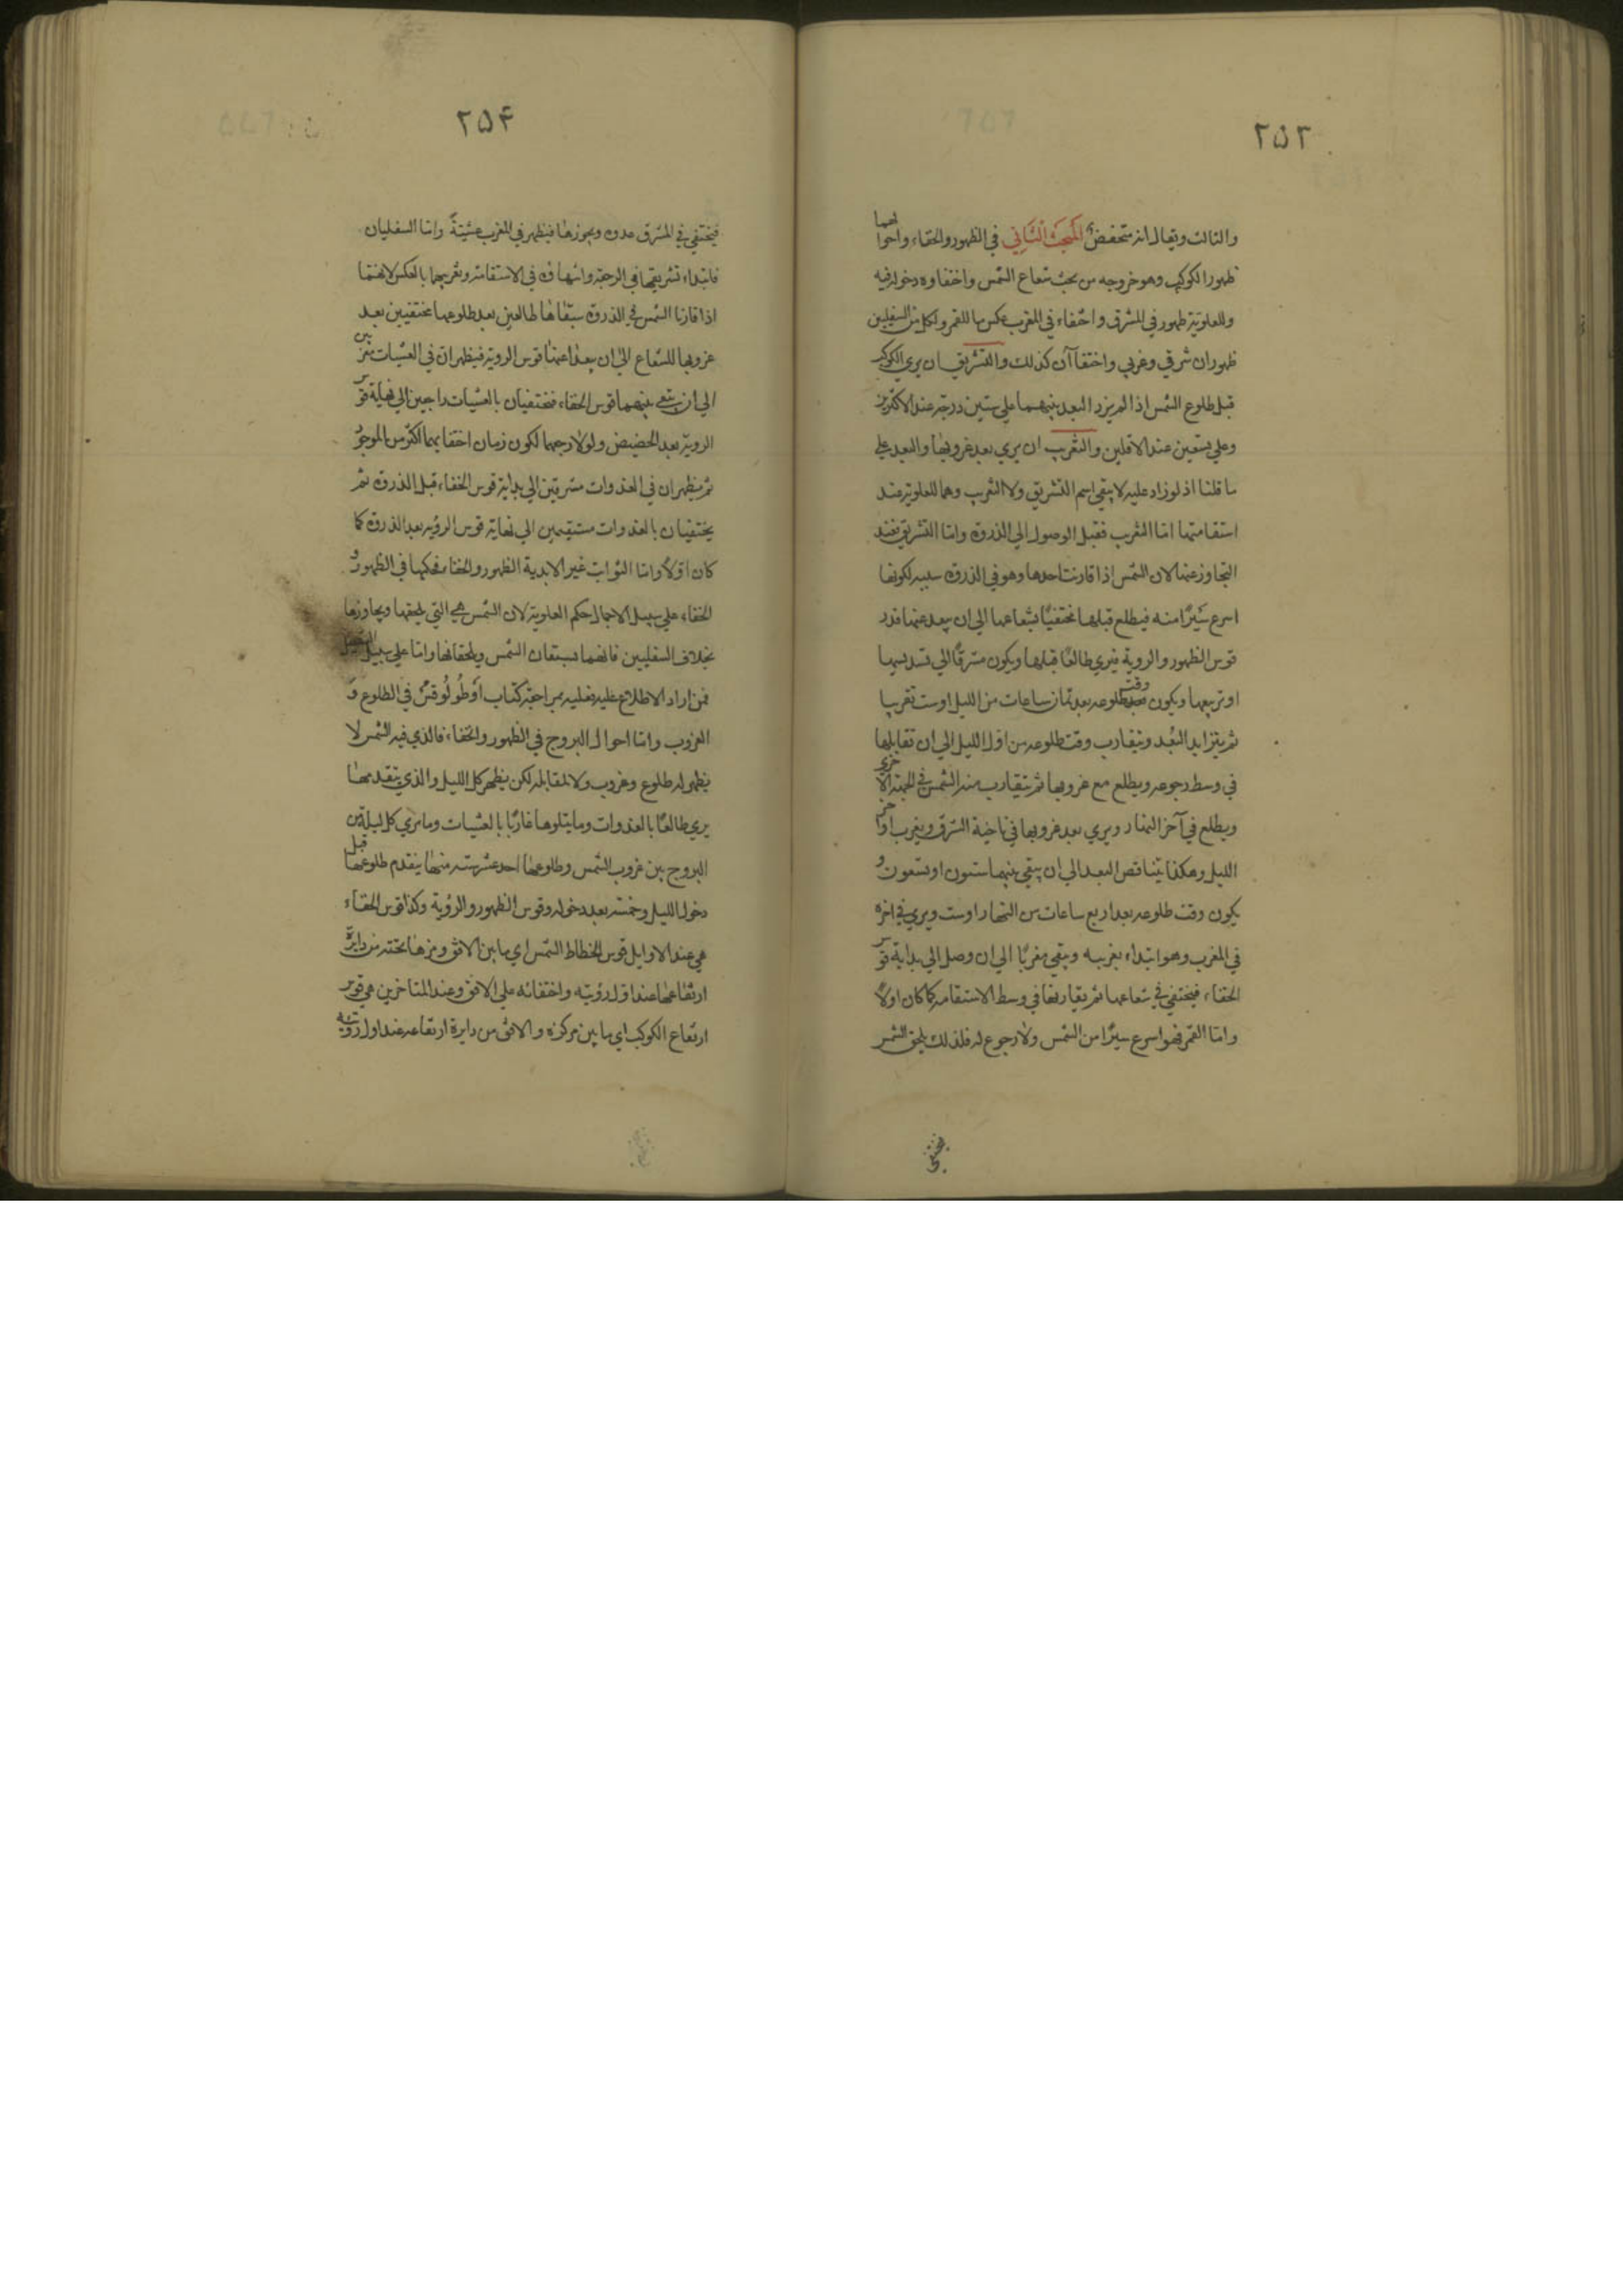 ٢٥٣
والثالث ويقال انه منخفض المبحث الثاني في الظهور والخفاء واحوالهما
ظهور الكوكب وهو خروجه من تحت شعاع الشمس واختفاوه دخوله فيه
وللعلوية ظهور في المشرق واختفاء في المغرب عكس ما للقمر ولكل من السفليين
ظهوران شرقي وغربي واختفاآن كذلك والتشريق ان يري الكوكب
قبل طلوع الشمس اذا لم يزد البعد بينهما علي ستين درجة عند الاكثرين
وعلي تسعين عند الاقلين والتغريب ان يري بعد غروبها والبعد علي
ما قلنا اذ لو زاد عليه لا يبقي اسم التشريق ولا التغريب وهما للعلوية عند
استقامتها اما التغريب فقبل الوصول الي الذروة واما التشريق فعند
التجاوز عنها لان الشمس اذا قارنت احدها وهو في الذروة سبقه لكونها
اسرع سيرًا منه فيطلع قبلها مختفيًا بشعاعها الي ان يبعد عنها قدر
قوس الظهور والروية فيري طالعًا قبلها ويكون مشرقًا الي تسديسها
او تربيعها ويكون وقت طلوعه بعد ثمان ساعات من الليل او ست تقريبا
ثم يتزايد البعد ويتقارب وقت طلوعه من اول الليل الي ان تقابلها
في وسط رجوعه ويطلع مع غروبها ثم يتقارب منه الشمس في الجهة الاخري
ويطلع في آخر النهار ويري بعد غروبها في ناحية الشرق ويغرب اواخر
الليل وهكذا يتناقص البعد الي ان يبقي بينهما ستون او تسعون و
يكون وقت طلوعه بعد اربع ساعات من النهار او ست ويري في اخره
في المغرب وهو ابتداء تغريبه ويبقي مغربًا الي ان وصل الي بداية قوس
الخفاء فيختفي في شعاعها ثم يقارنها في وسط الاستقامة كما كان اولًا
واما القمر فهو اسرع سيرًا من الشمس ولا رجوع له فلذلك يلحق الشمس
فيختفي
٢٥۴
فيختفي في المشرق مدة ويجوزها فيظهر في المغرب عشيةً واما السفليان
فابتداء تشريقهما في الرجعة وانتهاؤه في الاستقامة وتغريبهما بالعكس لانهما
اذا قارنا الشمس في الذروة سبقاها طالعين بعد طلوعها مختفيين بعد
غروبها للشعاع الي ان يبعدا عنها قوس الروية فيظهران في العشيات مغربين
الي ان يبقي بينهما قوس الخفاء فيختفيان بالعشيات راجعين الي نهاية قوس
الروية بعد الحضيض ولولا رجعهما لكون زمان اختفايهما اكثر من الموجود
ثم يظهران في الغدوات مشرقين الي بداية قوس الخفاء قبل الذروة ثم
يختفيان بالغدوات مستقيمين الي نهاية قوس الرؤيه بعد الذروة كما
كان اولًا واما الثوابت غير الابدية الظهور والخفاء فحكمها في الظهور و
الخفاء علي سبيل الاجمال حكم العلوية لان الشمس هي التي يلحقها ويجاوزها
بخلاف السفليين فانهما يسبقان الشمس ويلحقانها واما علي سبيل التفصيل
فمن اراد الاطلاع عليه فعليه بمراجعة كتاب اوطولوقس في الطلوع و
الغروب واما احوال البروج في الظهور والخفاء فالذي فيه الشمس لا
يظهر له طلوع وغروب ولا لمقابله لكن يظهر كل الليل والذي يتقدمها
يري طالعًا بالغدوات وما يتلوها غاربًا بالعشيات وما يري كل ليلة من
البروج بين غروب الشمس وطلوعها احد عشر ستة منها يتقدم طلوعها قبل
دخول الليل وخمسة بعد دخوله وقوس الظهور والرؤية وكذا قوس الخفاء
هي عند الاوايل قوس انحطاط الشمس اي ما بين الافق ومركزها تحته من دايرة
ارتفاعها عند اول رؤيته واختفائه علي الافق وعند المتاخرين هي قوس
ارتفاع الكوكب اي ما بين مركزه والافق من دايرة ارتفاعه عند اول رؤيته